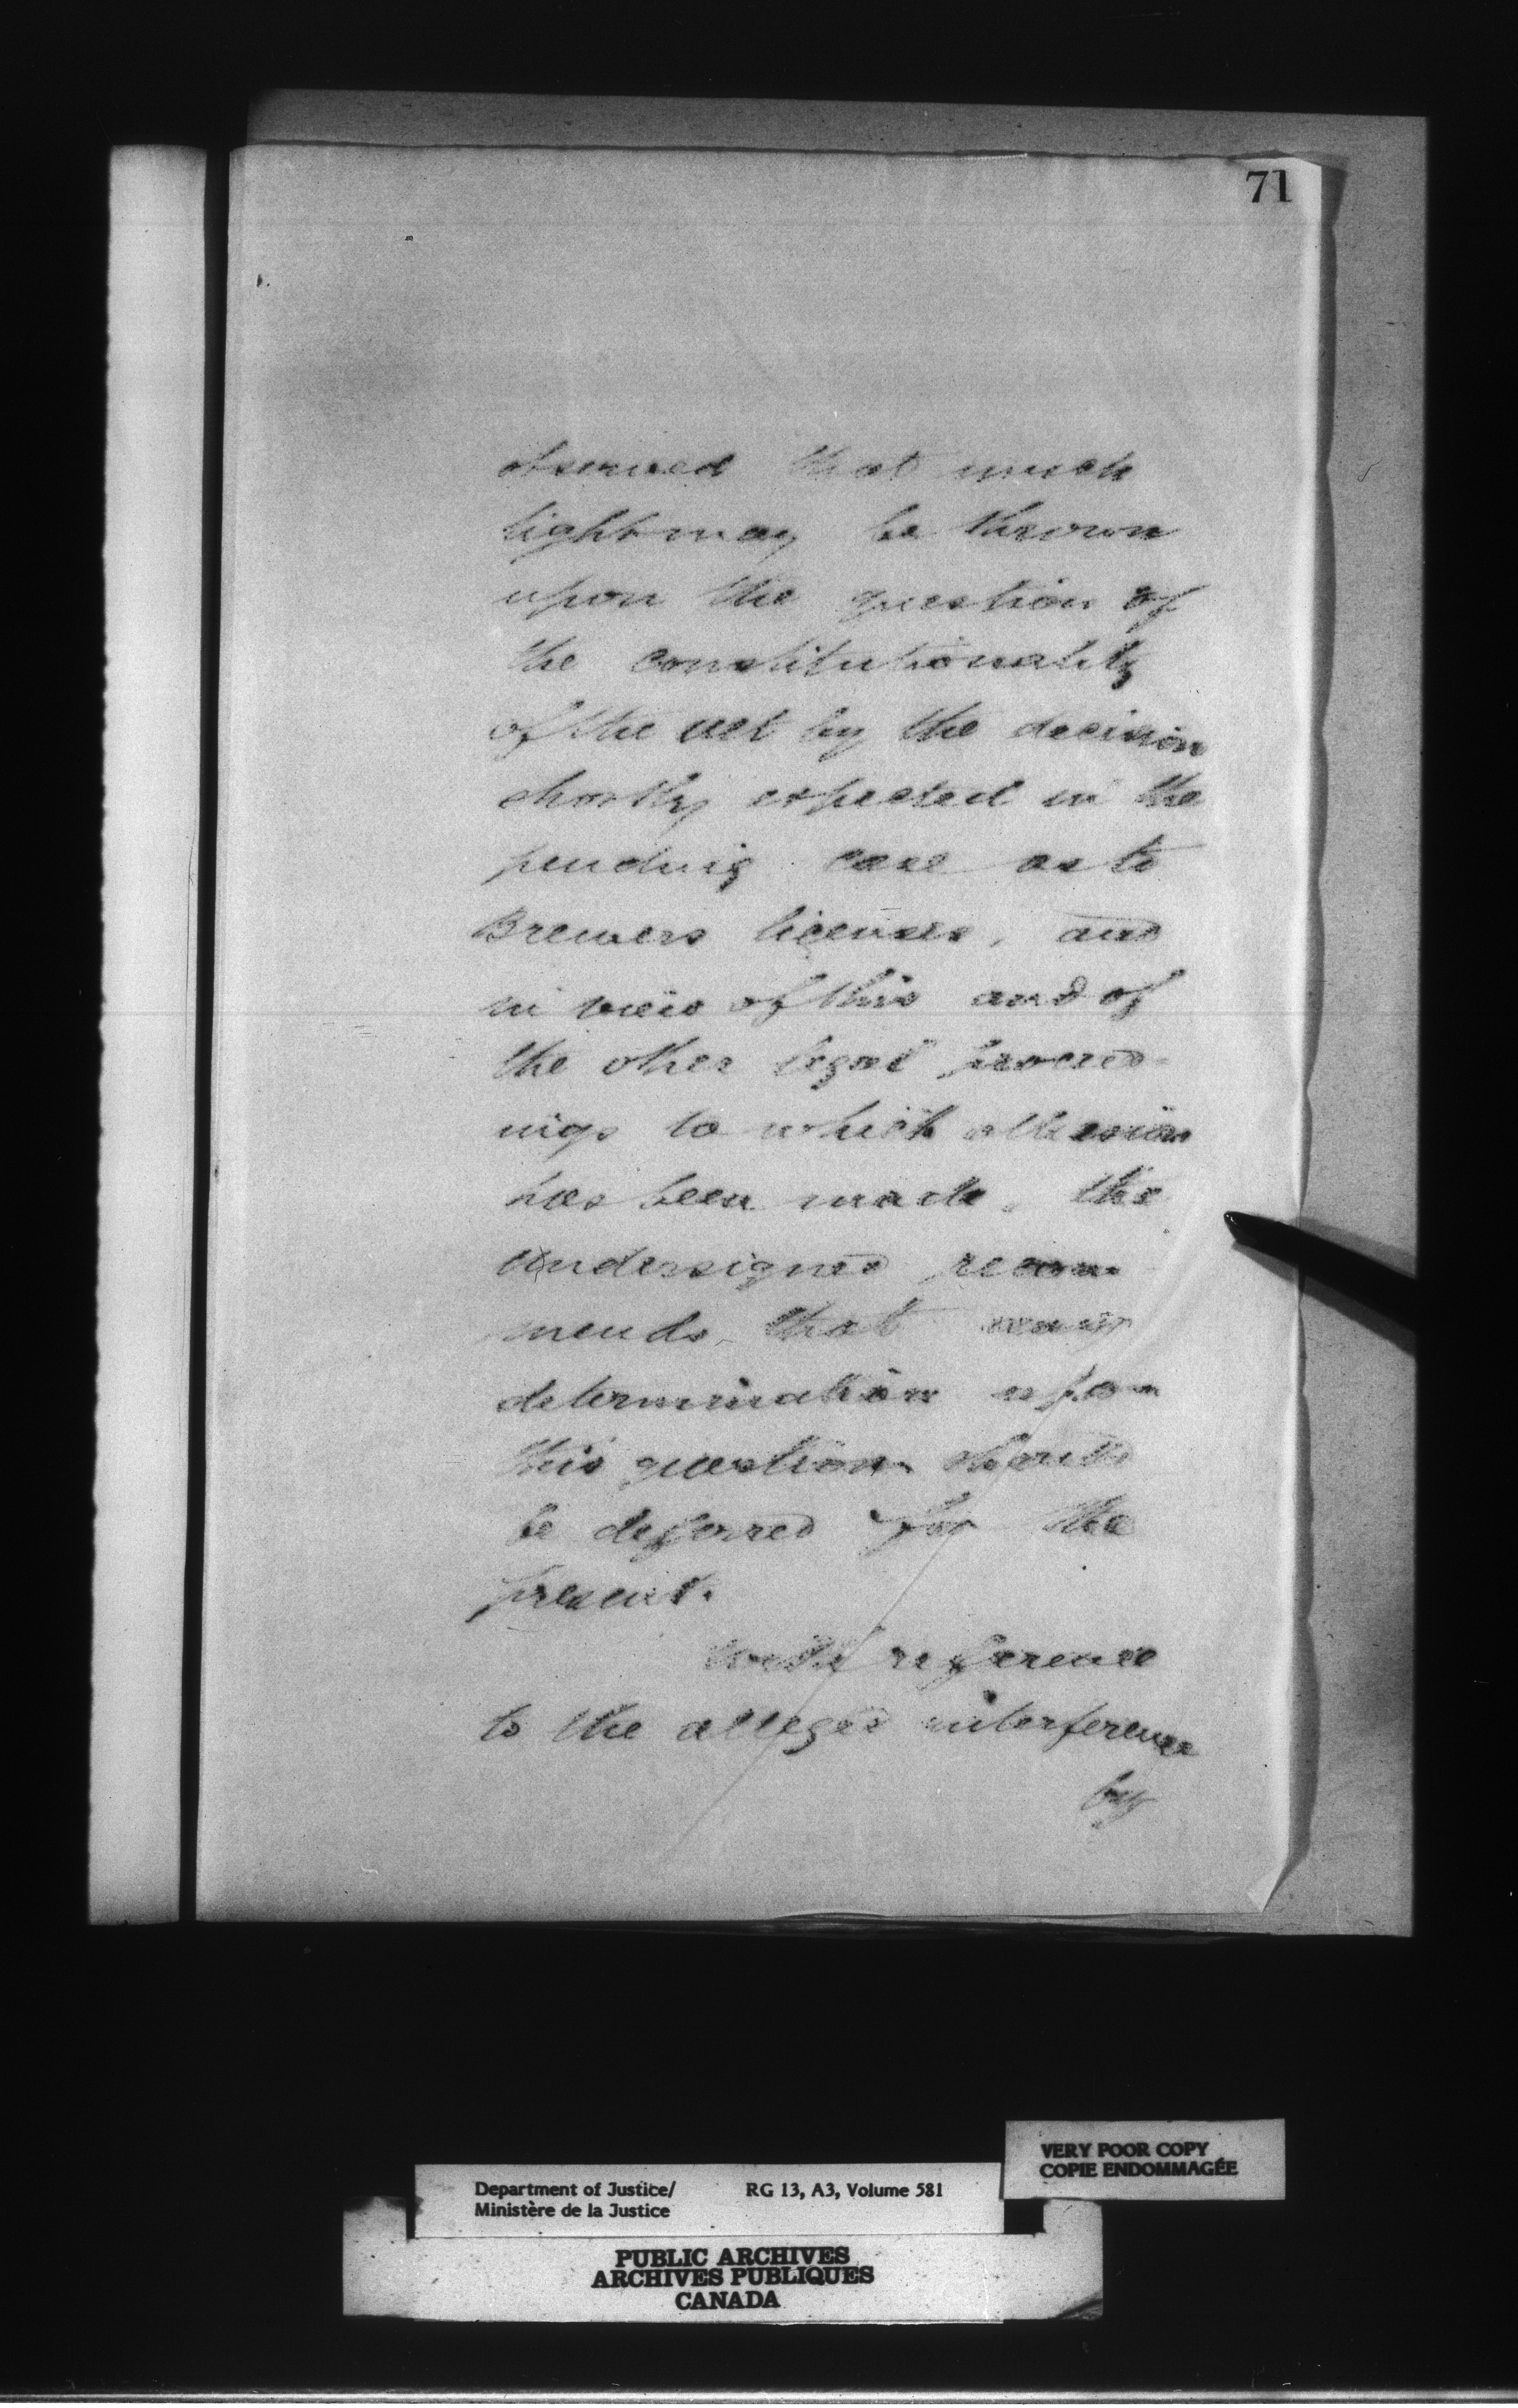 71
observed that much
light may be thrown
upon the question of
the constitutionality
of the Act by the decision
shortly expected in the
pending case as to
Brewers licenses, and
in view of this and of
the other legal proceed-
ings to which allusion
has been made, the
Undersigned recom-
mends that
determination upon
this question should
be deferred for the
present.
With reference
to the alleged interference
by
VERY POOR COPY
COPIE ENDOMMAGÉE
Department of Justice/ RG 13, A3, Volume 581
Ministère de la Justice
PUBLIC ARCHIVES
ARCHIVES PUBLIQUES
CANADA